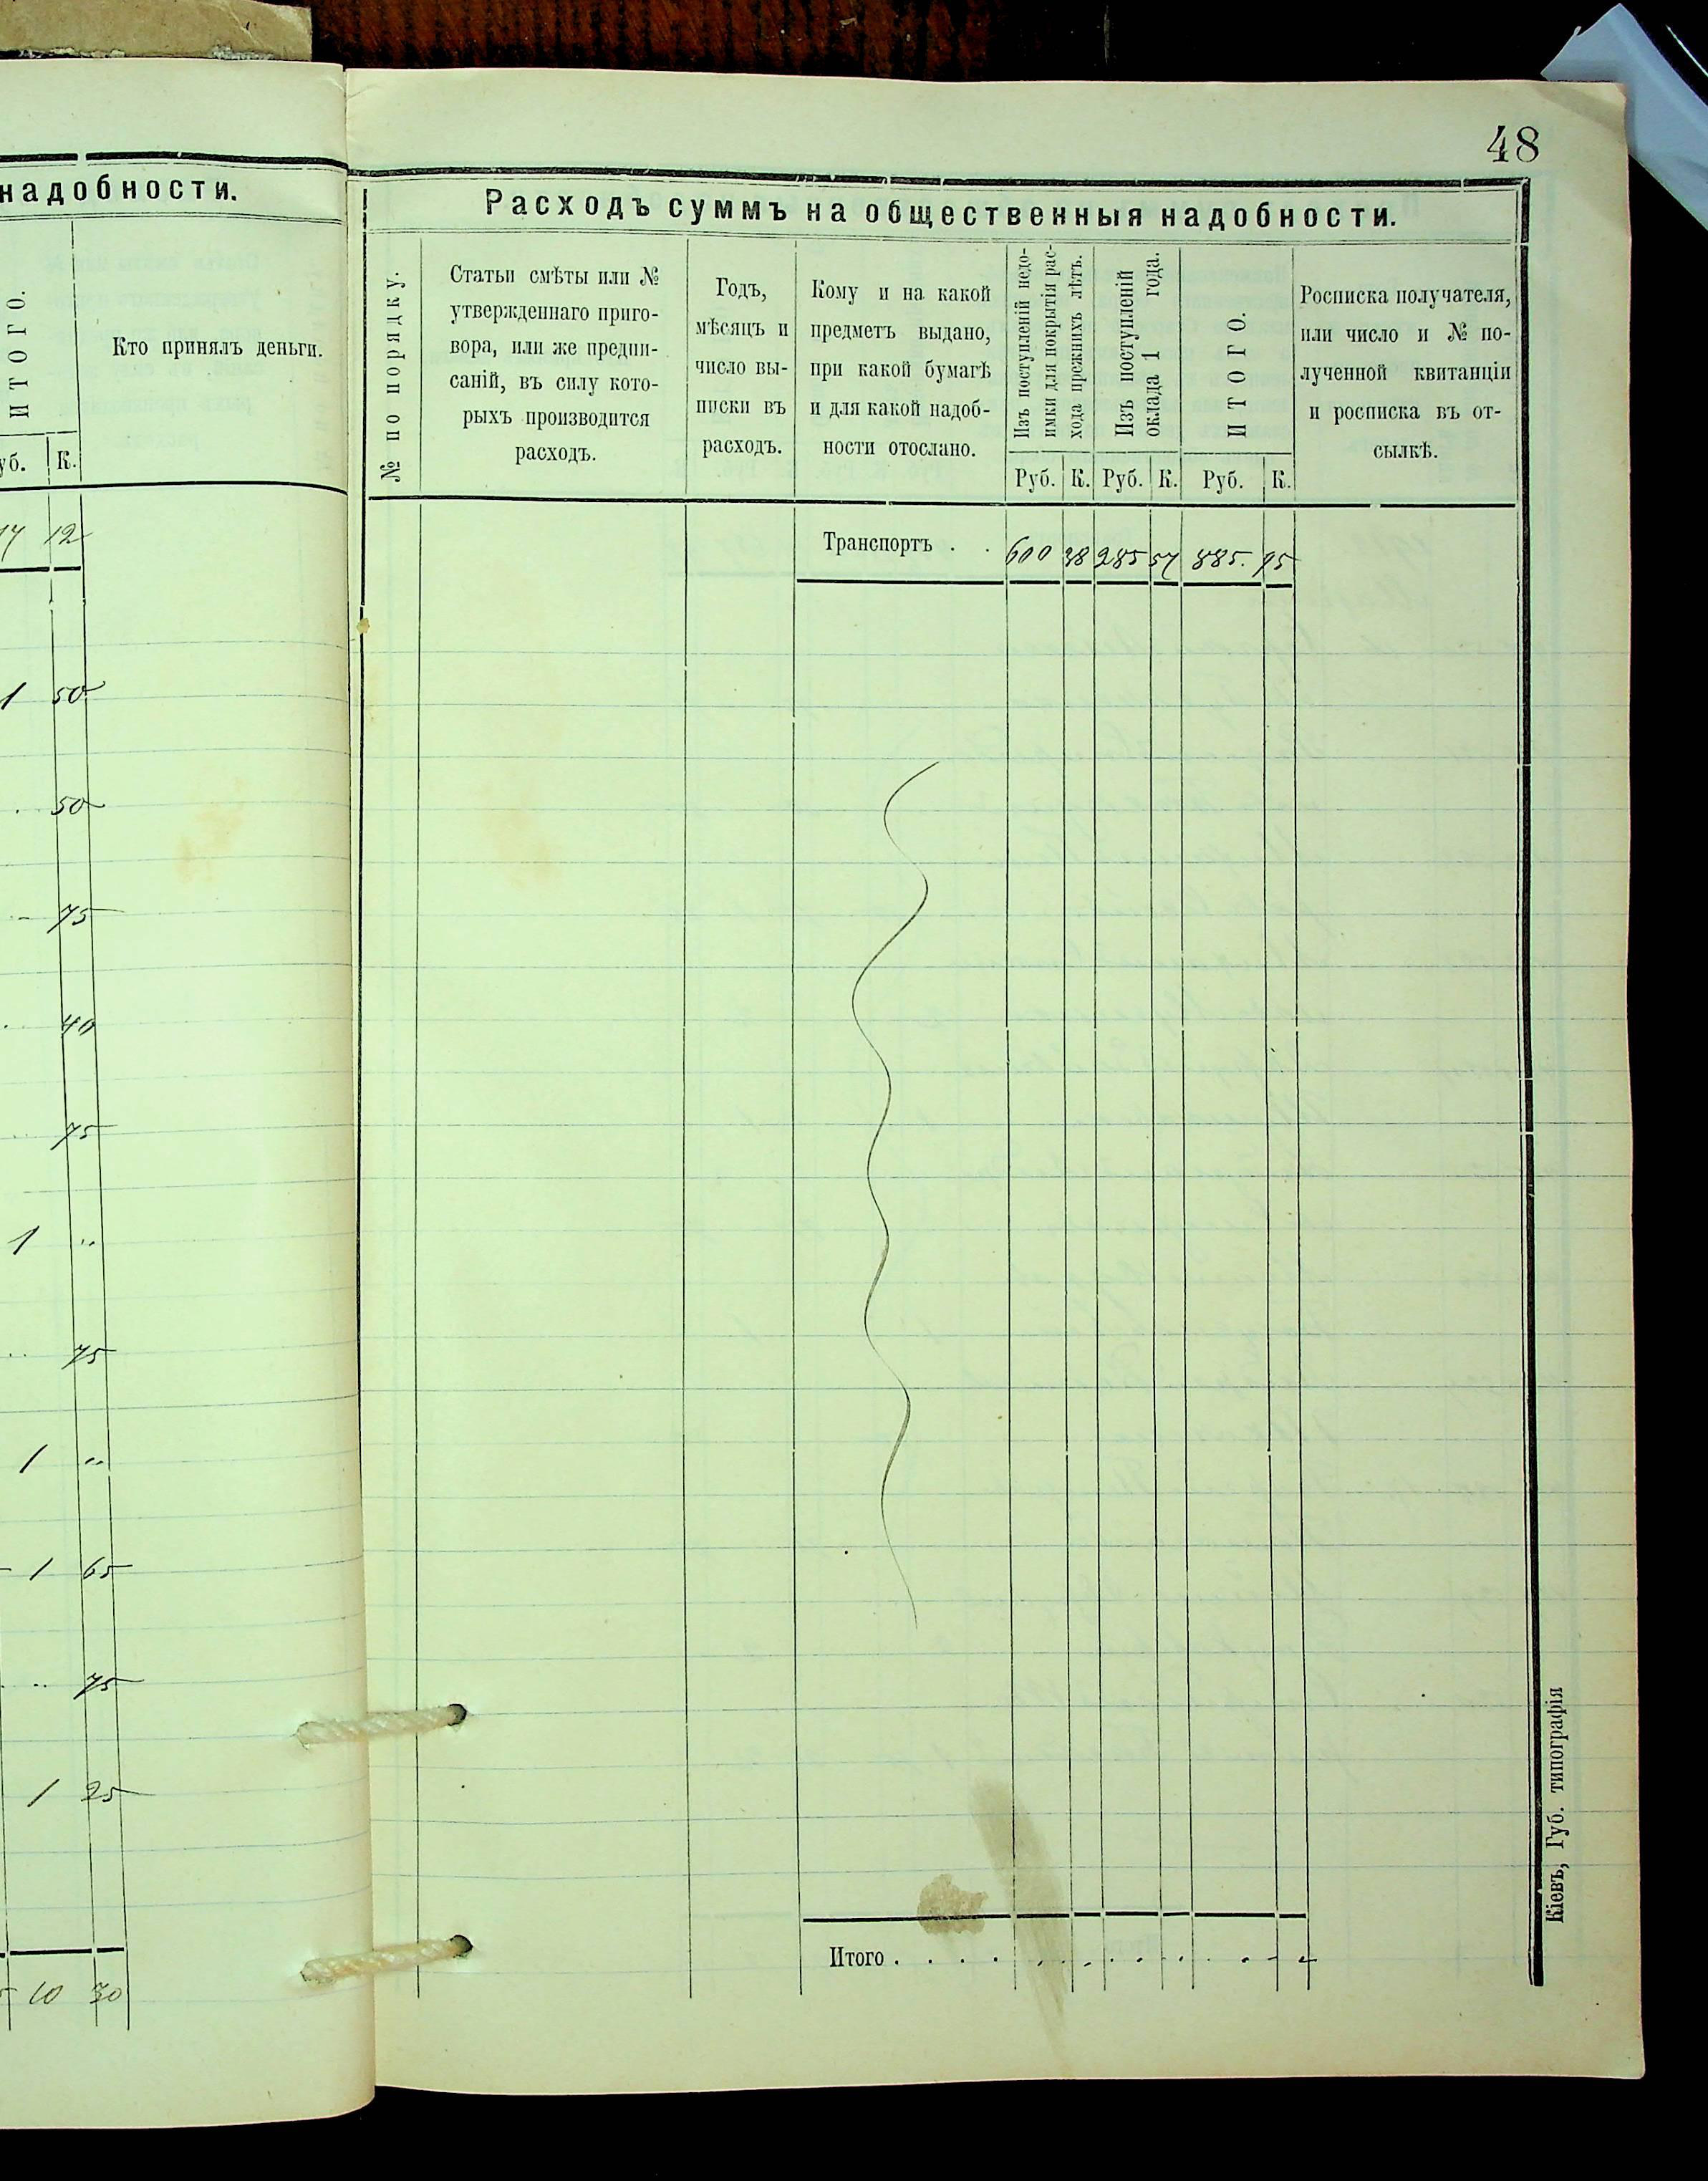 48
надобности.
ИТОГО.
Кто принялъ деньги.
уб. К.
12
1 50
50
75
40
75
1 "
75
1 "
1 65
75
1 25
10 30
Расходъ суммъ на общественныя надобности.
№ по порядку.
Статьи смѣты или №
утвержденнаго приго-
вора, или же предпи-
саній, въ силу кото-
рыхъ производится
расходъ.
Годъ,
мѣсяцъ и
число вы-
писки въ
расходъ.
Кому и на какой
предметъ выдано,
при какой бумагѣ
и для какой надоб-
ности отослано.
Изъ поступленій недо-
имки для покрытія рас-
хода прежнихъ лѣтъ.
Изъ поступленій
оклада 1 года.
ИТОГО.
Росписка получателя,
или число и № по-
лученной квитанціи
и росписка въ от-
сылкѣ.
Руб. К. Руб. К. Руб. К.
Транспортъ . . 600 38 285 57 885. 95
Итого . . . . . . . . . . . . .
Кіевъ, Губ. типографія